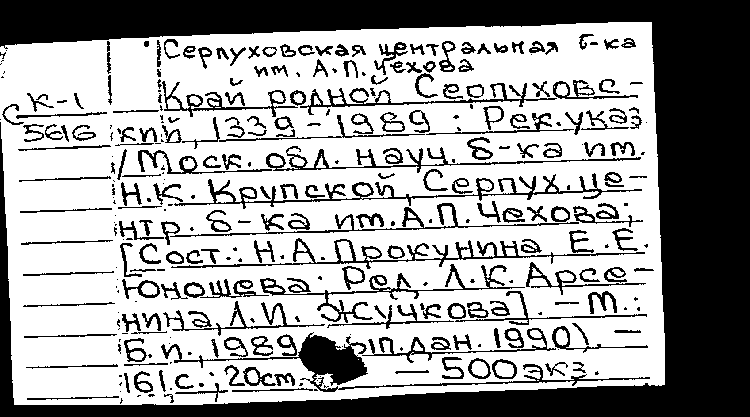 Серпуховская центральная б-ка
им. А.П. Чехова
К-1
5616
Край родной Серпуховс-
кий, 1339-1989 : Рек. указ
/Моск. обл. науч. б-ка им.
Н.К. Крупской, Серпух. це-
нтр. б-ка им. А.П. Чехова;
[Сост.: Н.А. Прокунина, Е.Е.
Юношева; Ред. Л.К. Арсе-
нина, Л.И. Жучкова]. - М.:
Б.и., 1989 дан. 1990). -
161, с.; 20см. - 500 экз.